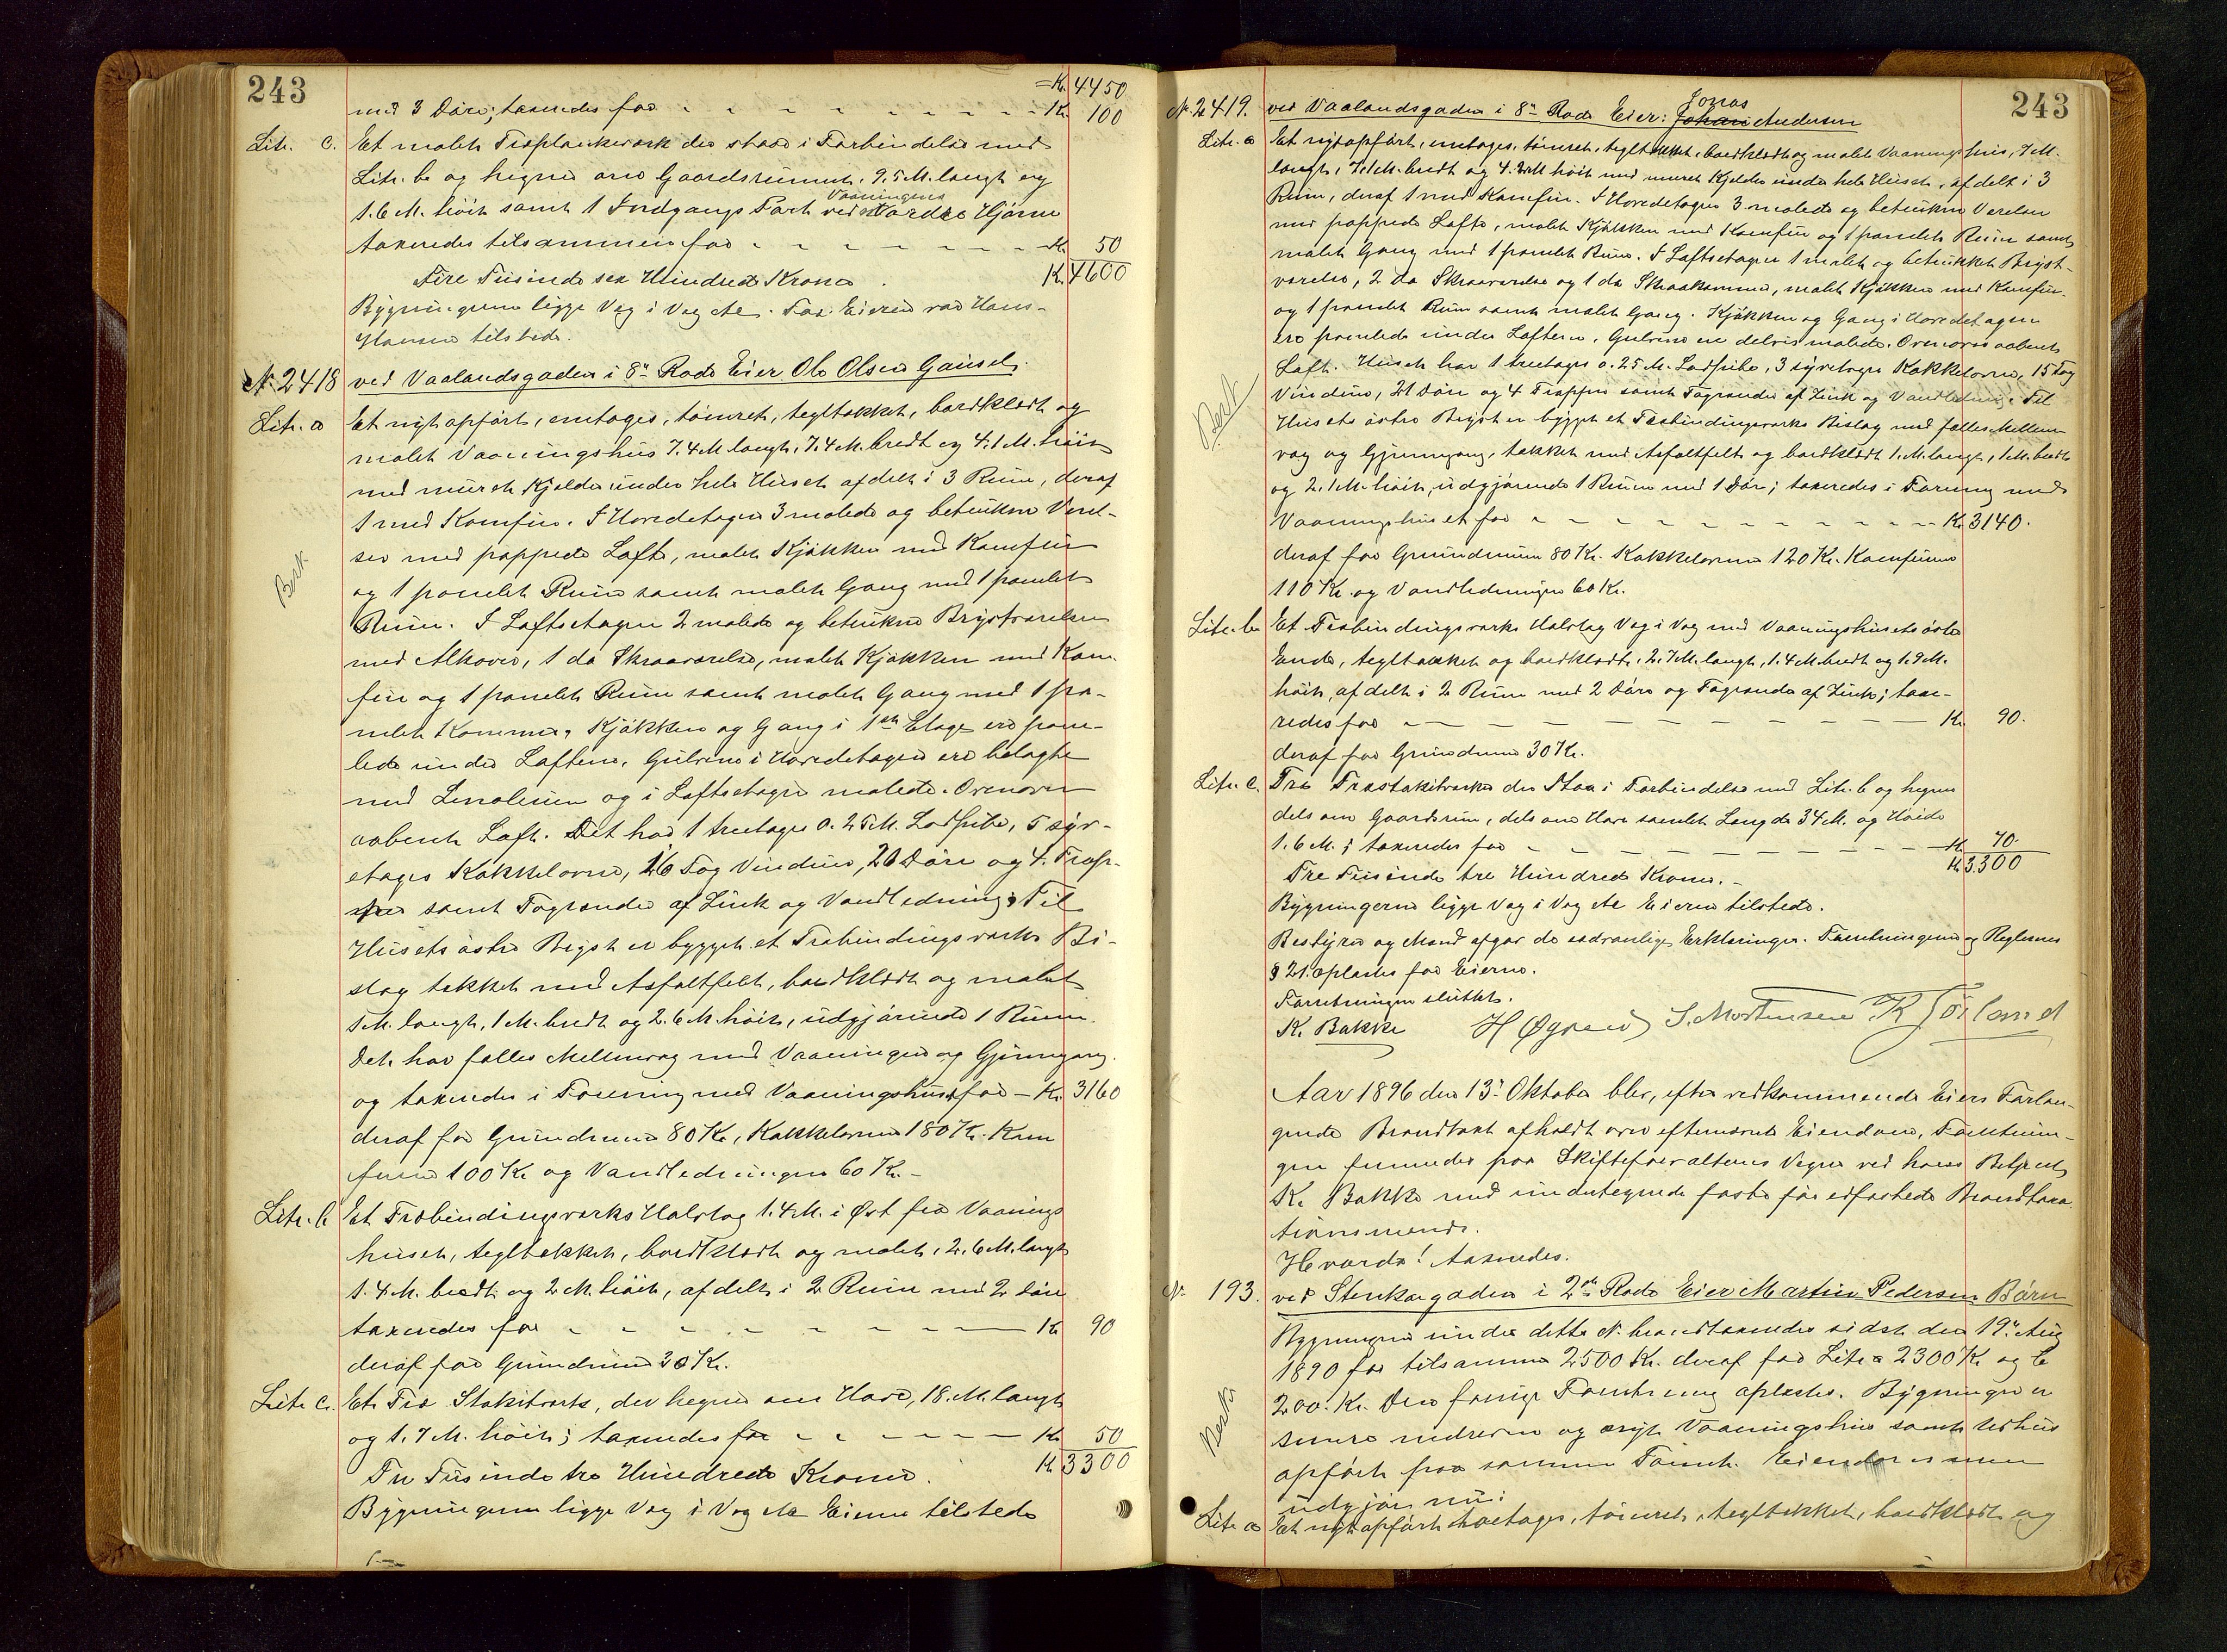 243
Kr. 4450
med 3 Døre; taxeredes for - - - - - Kr. 100
Litr. c. Et malet Træplankeværk der staar i Forbindelse med
Litr. b og hegner om Gaardsrummet, 9.5 M. langt og
1.6 M. høit samt 1 Indgangs Port ved Vaaningens Hjørne
taxeredes tilsammen for - - - - - Kr. 50
Fire Tusinde sex Hundrede Kroner. Kr. 4600
Bygningerne ligge Væg i Væg. For Eieren var Hans
Hansen tilstede.
№ 2418 ved Vaalandsgaden i 8de Rode Eier Ole Olsen Gausel.
Litr. a Et nyt opført, enetages, tømret, tegltækket, bordklædt og
malet Vaaningshus 7.4 M. langt, 7.4 M. bredt og 4.1 M. høit
med muret Kjelder under hele Huset afdelt i 3 Rum, deraf
1 med Komfur. I Hovedetagen 3 malede og betrukne Værel-
ser med pappede Loft, malet Kjøkken med Komfur
og 1 panelet Rum samt malet Gang med 1 panelet
Rum. I Loftsetagen 2 malede og betrukne Brystværelser
med Alkover, 1 do Skraaværelse, malet Kjøkken med Kom-
fur og 1 panelet Rum samt malet Gang med 1 pa-
nelet Kammer. Kjøkken og Gang i 1ste Etage ere pane-
lede under Loftene. Gulvene i Hovedetagen ere belagte
med Linoleum og i Loftsetagen malede. Ovenover
aabent Loft. Det har 1 treetages 0.25 M. Lodpibe, 5 syv-
etages Kakkelovne, 16 Fag Vinduer, 20 Døre og 4 Trap-
per samt Tagrender af Zink og Vandledning. Til
Husets østre Bryst er bygget et Træbindingsværks Bi-
slag tækket med Asfaltfelt, bordklædt og malet
1 M. langt, 1 M. bredt og 2.6 M. høit, udgjørende 1 Rum.
Det har fælles Mellemvæg med Vaaningen og Gjennemgang
og taxeredes i Forening med Vaaningshuset for - Kr. 3160
deraf for Grundmuren 80 Kr., Kakkelovnene 180 Kr. Kom
furene 100 Kr. og Vandledningen 60 Kr. -
Litr. b Et Træbindingsværks Halvtag 1.4 M. i Øst fra Vaanings
huset, tegltækket, bordklædt og malet, 2.6 M. langt
1.4 M. bredt og 2 M. høit, afdelt i 2 Rum med 2 Døre
taxeredes for - - - - - Kr. 90
deraf for Grundmuren 20 Kr.
Litr. c. Et Træ Stakitværk, der hegner om Have, 18 M. langt
og 1.7 M. høit; taxeredes for - - - - - Kr. 50
Tre Tusinde tre Hundrede Kroner. Kr. 3300
Bygningerne ligge Væg i Væg. Eieren tilstede
243
№ 2419. ved Vaalandsgaden i 8de Rode Eier: Jonas Johan Andersen
Litr. a Et nyt opført, enetages, tømret, tegltækket, bordklædt og malet Vaaningshus, 7 M.
langt, 7.1 M. bredt og 4.2 M. høit med muret Kjelder under hele Huset, afdelt i 3
Rum, deraf 1 med Komfur. I Hovedetagen 3 malede og betrukne Værelser
med pappede Loft, malet Kjøkken med Komfur og 1 panelet Rum samt
malet Gang med 1 panelet Rum. I Loftsetagen 1 malet og betrukket Bryst-
værelse, 2 do Skraaværelse og 1 do Skraakammer, malet Kjøkken med Komfur
og 1 panelet Rum samt malet Gang. Kjøkken og Gang i Hovedetagen
ere panelede under Loftene. Gulvene ere delvis malede. Ovenover aabent
Loft. Huset har 1 treetages 0.25 M. Lodpibe, 3 syvetages Kakkelovne, 15 Fag
Vinduer, 21 Døre og 4 Trapper samt Tagrender af Zink og Vandledning. Til
Husets østre Bryst er bygget et Træbindingsværks Bislag med fælles Mellem
væg og Gjennemgang, tækket med Asfaltfelt og bordklædt 1 M. langt, 1 M. bredt
og 2.1 M. høit, udgjørende 1 Rum med 1 Dør; taxeredes i Forening med
Vaaningshuset for - - - - - Kr. 3140.
deraf for Grundmuren 80 Kr. Kakkelovnene 120 Kr. Komfurene
110 Kr. og Vandledningen 60 Kr.
Litr. b Et Træbindingsværks Halvtag Væg i Væg med Vaaningshusets østre
Ende, tegltækket og bordklædt, 2.7 M. langt, 1.4 M. bredt og 1.9 M.
høit, afdelt i 2 Rum med 2 Døre og Tagrende af Zink; taxe-
redes for - - - - - Kr. 90.
deraf for Grundmur 30 Kr.
Litr. c. Tre Træstakitværker der staa i Forbindelse med Litr. b og hegne
dels om Gaardsrum, dels om Have samlet Længde 34 M. og Høide
1.6 M.; taxeredes for - - - - - Kr. 70.
Tre Tusinde tre Hundrede Kroner. - Kr. 3300
Bygningerne ligge Væg i Væg. Eieren tilstede.
Bestyrer og Mænd afgav de sædvanlige Erklæringer. Forretningerne og Reglernes
§ 21 oplæstes for Eierne.
Forretningen sluttet.
K. Bakke H Øgreid S. Mortensen K Jørland
Aar 1896 den 13de Oktober blev, efter vedkommende Eiers Forlan-
gende Brandtaxt afholdt over efternævnte Eiendom, Forretnin-
gen fremmedes paa Skifteforvalterens Vegne ved hans Betjent
K. Bakke med undertegnede faste før edfæstede Brandtaxa
tionsmænd.
Hvorda! taxeredes.
№ 193. ved Stenkargaden i 2den Rode Eier Martin Pedersen Børn
Bygningerne under dette № brandtaxeredes sidst den 19de Aug
1890 for tilsammen 2500 Kr. deraf for Litr. a 2300 Kr. og b
200. Kr. Den forrige Forretning oplæstes. Bygningerne er
senere nedrevne og nyt Vaaningshus samt Udhus
opført paa samme Tomt. Eiendommen
udgjør nu:
Litr. a Et nyt opført toetages, tømret, tegltækket, bordklædt og
Besk
Besk
Besk